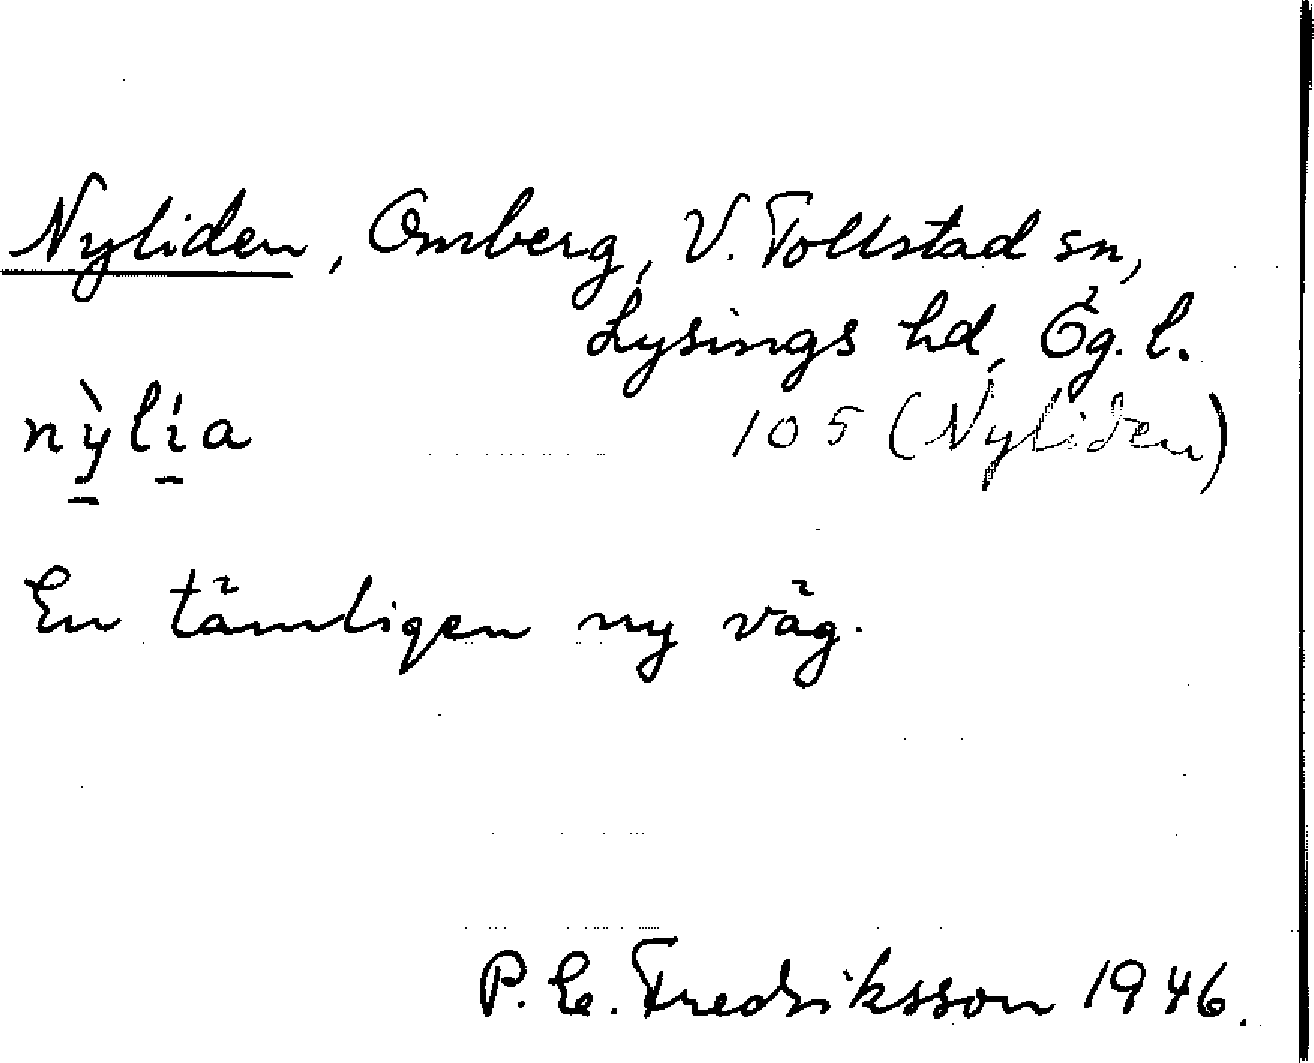 Nyliden, Omberg, V. Tollstad sn,
Lysings hd, Ög. l.
nỳlía 105 (Nyliden)
En tämligen ny väg.
P. E. Fredriksson 1946.